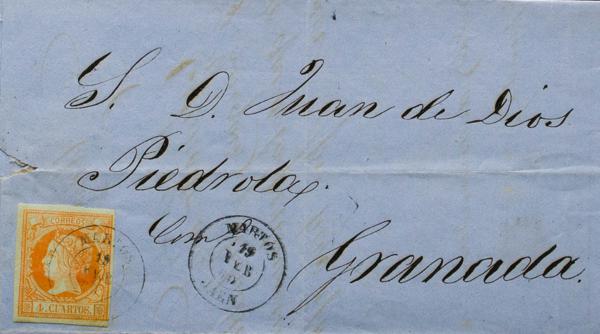 S. D. Juan de Dios
Piédrola.
Com
Granada.
CORREOS
4 CUARTOS.
MARTOS
19
FEB
JAEN
MARTOS
19